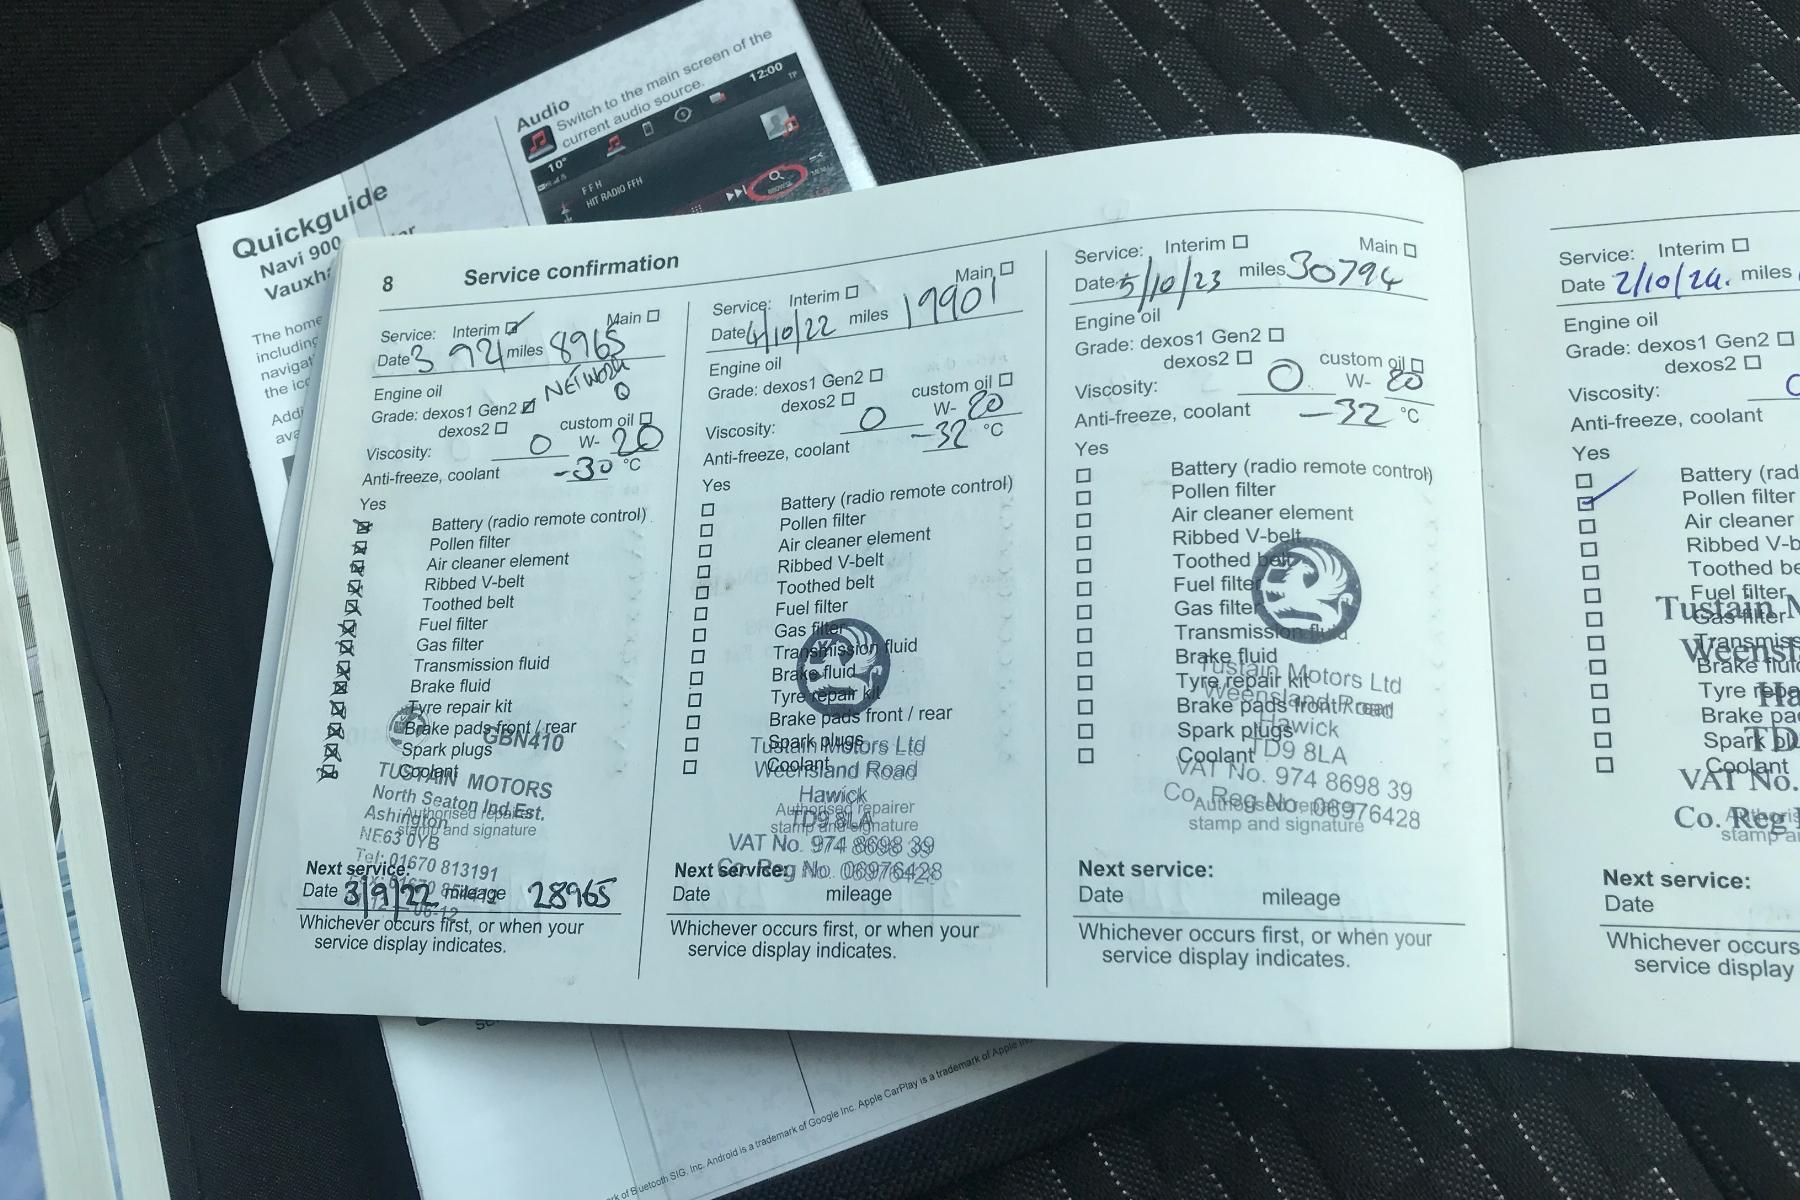 Audio
Switch to the main screen of the
current audio source.
12:00
TP
10°
FFH
HIT RADIO FFH
BROWSE
Quickguide
Navi 900
Vauxha
The home
including
navigat
the ic
Addi
ava
8 Service confirmation
Service: Interim Main
Date 3 9 21 miles 8965
NETWORK
Q
Engine oil
Grade: dexos1 Gen2
dexos2 custom oil
Viscosity: 0 W- 20
Anti-freeze, coolant -30 °C
Yes
Battery (radio remote control)
Pollen filter
Air cleaner element
Ribbed V-belt
Toothed belt
Fuel filter
Gas filter
Transmission fluid
Brake fluid
Tyre repair kit
Brake pads front / rear
GBN410
Spark plugs
Coolant
TUSTAIN MOTORS
North Seaton Ind.Est.
Ashington
Authorised repairer
stamp and signature
NE63 0YB
Tel: 01670 813191
Next service:
Date 3/9/22 mileage 28965
Whichever occurs first, or when your
service display indicates.
Service: Interim Main
Date 4/10/22 miles 19901
Engine oil
Grade: dexos1 Gen2
dexos2 custom oil
Viscosity: 0 W- 20
Anti-freeze, coolant -32 °C
Yes
Battery (radio remote control)
Pollen filter
Air cleaner element
Ribbed V-belt
Toothed belt
Fuel filter
Gas filter
Transmission fluid
Brake fluid
Tyre repair kit
Brake pads front / rear
Spark plugs
Tustain Motors Ltd
Coolant
Weensland Road
Hawick
Authorised repairer
TD9 8LA
stamp and signature
VAT No. 974 8698 39
Co. Reg No. 06976428
Next service:
Date mileage
Whichever occurs first, or when your
service display indicates.
Service: Interim Main
Date 5/10/23 miles 30794
Engine oil
Grade: dexos1 Gen2
dexos2 custom oil
Viscosity: 0 W- 20
Anti-freeze, coolant -32 °C
Yes
Battery (radio remote control)
Pollen filter
Air cleaner element
Ribbed V-belt
Toothed belt
Fuel filter
Gas filter
Transmission fluid
Brake fluid
Tustain Motors Ltd
Tyre repair kit
Weensland Road
Brake pads front / rear
Hawick
Spark plugs
TD9 8LA
Coolant
VAT No. 974 8698 39
Co. Reg No. 06976428
Authorised repairer
stamp and signature
Next service:
Date mileage
Whichever occurs first, or when your
service display indicates.
Service: Interim
Date 2/10/24. miles
Engine oil
Grade: dexos1 Gen2
dexos2
Viscosity: 0
Anti-freeze, coolant
Yes
Battery (rad
Pollen filter
Air cleaner
Ribbed V-b
Toothed be
Fuel filter
Tustain M
Gas filter
Transmiss
Weensl
Brake fluid
Tyre repa
Ha
Brake pa
TD
Spark plu
Coolant
VAT No.
Co. Reg
Authoris
stamp a
Next service:
Date
Whichever occurs
service display
rk of Bluetooth SIG, Inc. Android is a trademark of Google Inc. Apple CarPlay is a trademark of Apple Inc